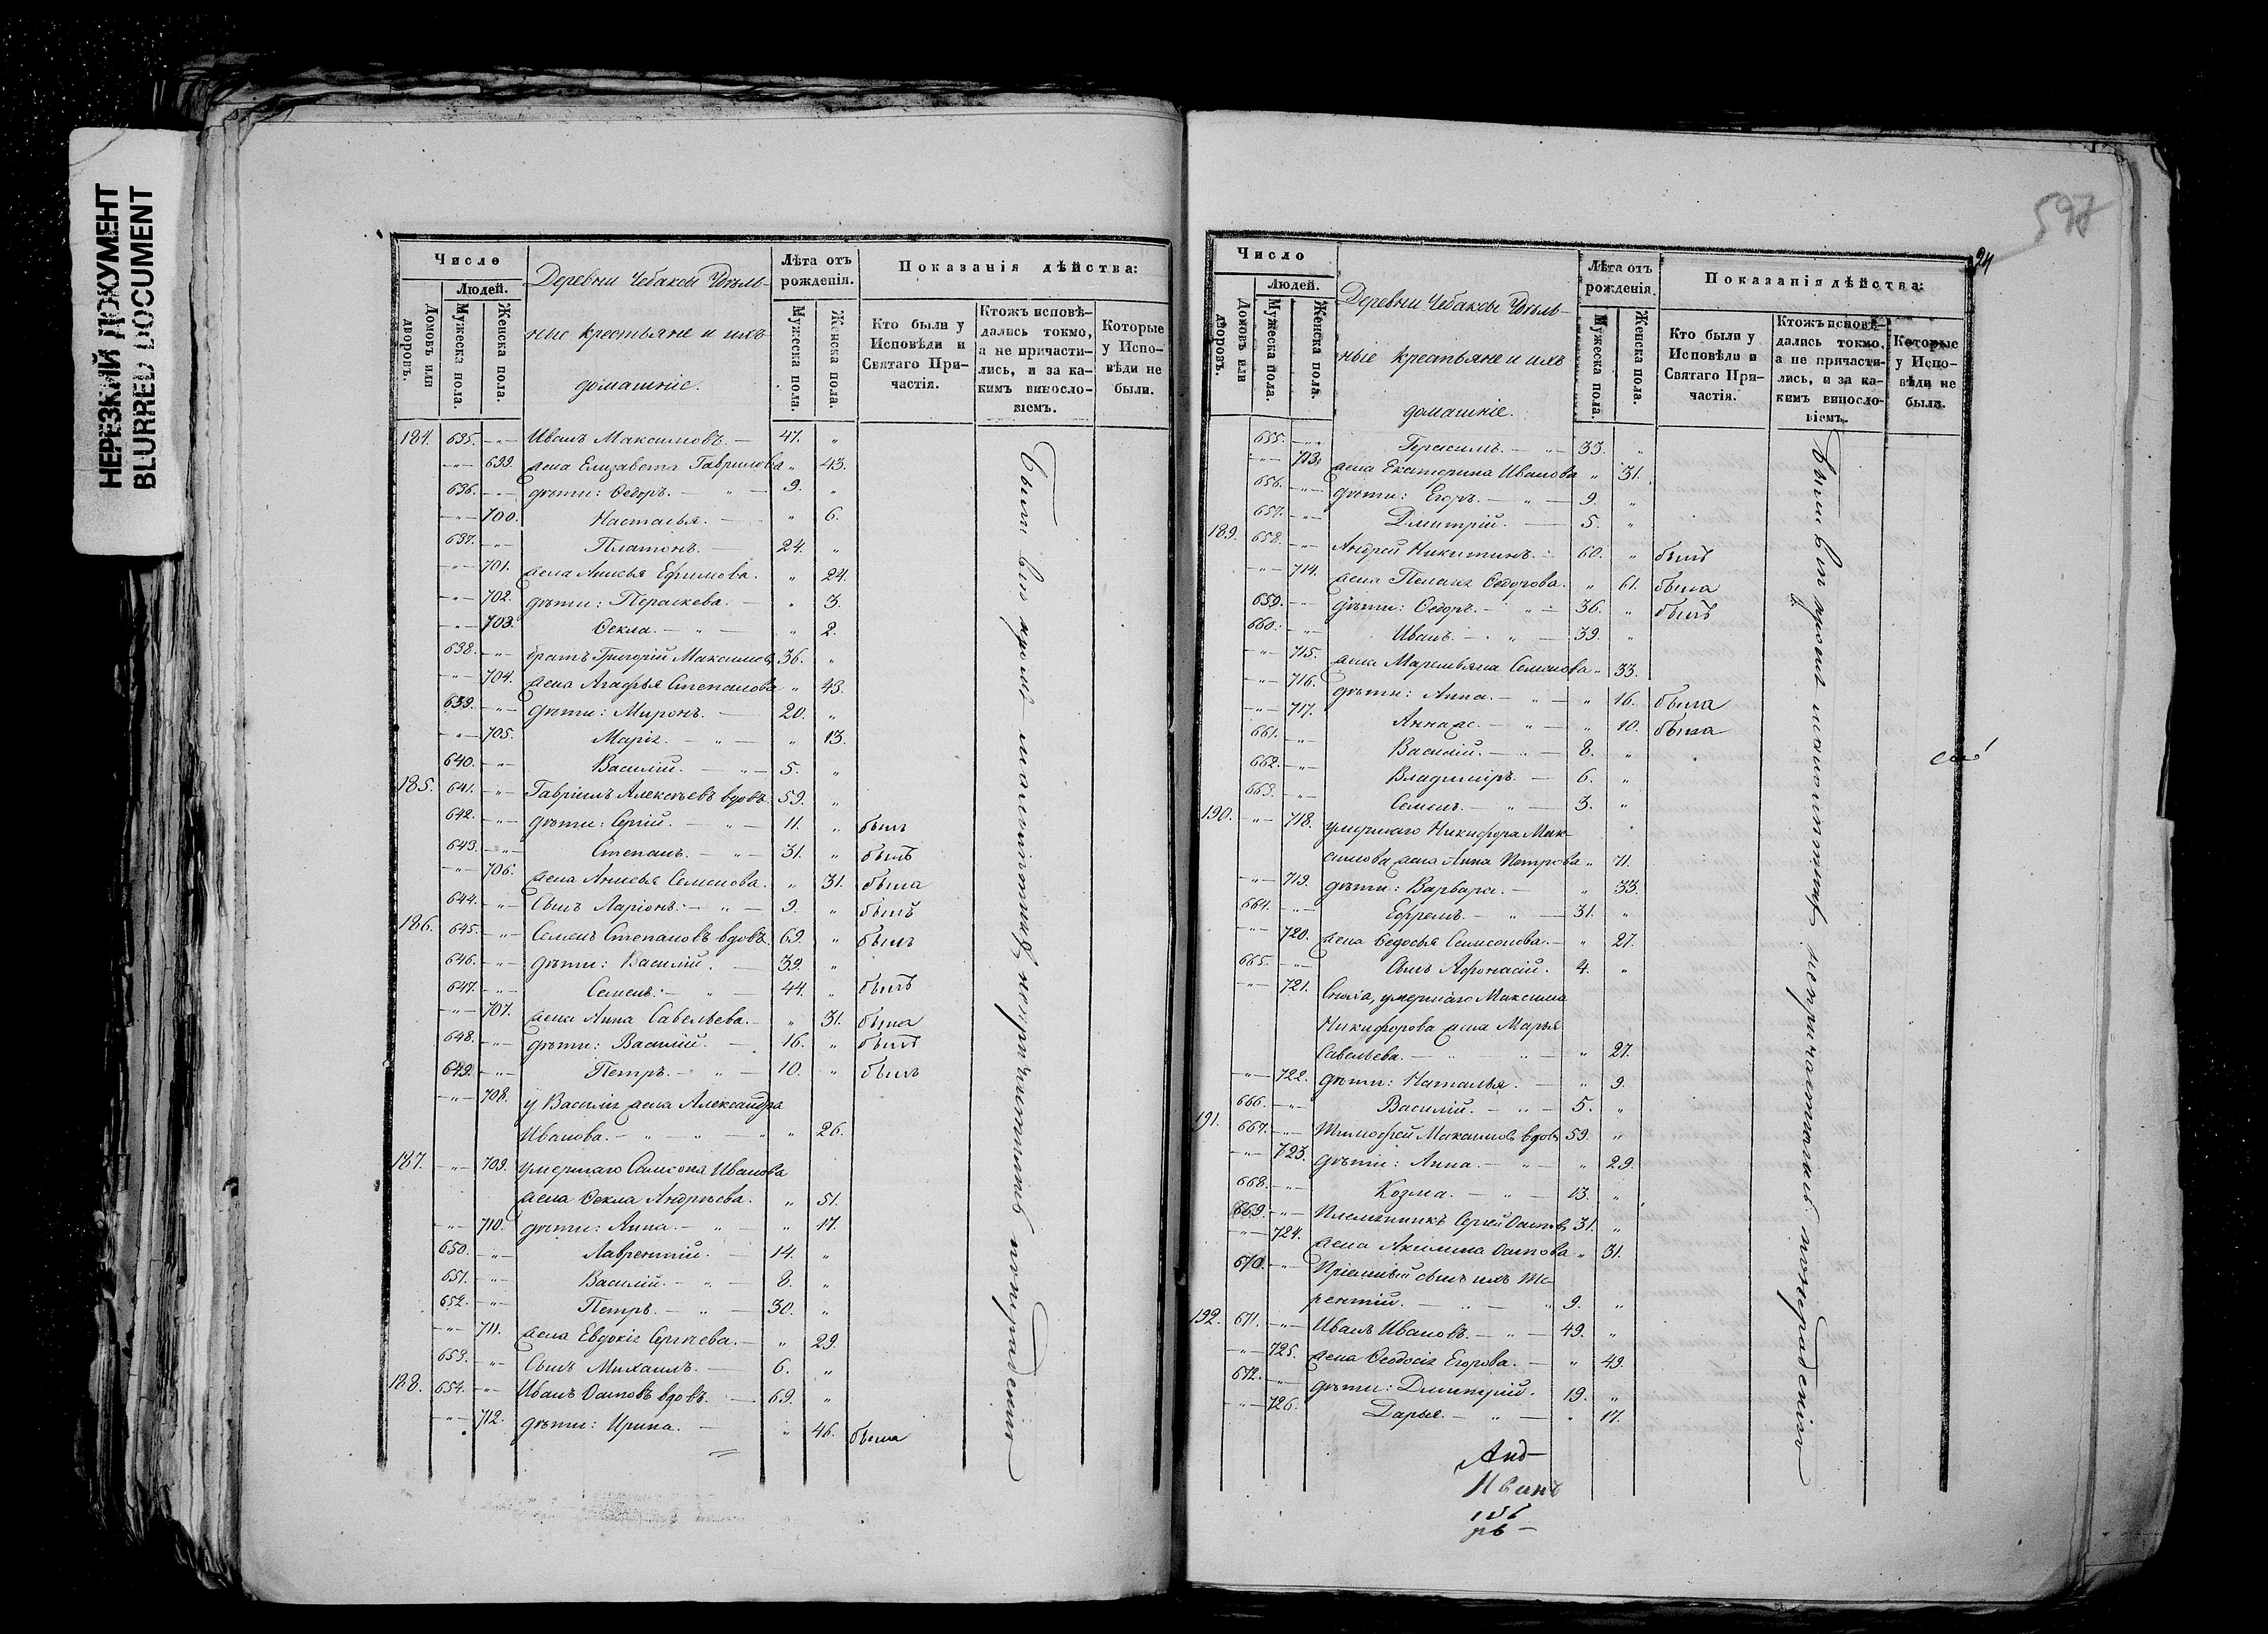 НЕРЕЗКИЙ ДОКУМЕНТ
BLURRED DOCUMENT
Число
Людей.
Домовъ или дворовъ.
Мужеска пола.
Женска пола.
Деревни Чебаксы Удѣль-
ные крестьяне и ихъ
домашніе.
Лѣта отъ рожденія.
Мужеска пола.
Женска пола.
Показанія дѣйства:
Кто были у Исповѣди и Святаго При-частія.
Ктожъ исповѣ-дались токмо, а не причасти-лись, и за ка-кимъ винослo-віемъ.
Которые у Испо-вѣди не были.
184. 635. -"- Иванъ Максимовъ. — 47. "
-"- 699. жена Елизавета Гаврилова " 43.
636. -"- дѣти: Ѳедоръ. — " — 9. "
-"- 700. Настасья. — " 6.
637. -"- Платонъ. — 24. "
-"- 701. жена Анисья Ефимова. " 24.
-"- 702. дѣти: Пераскева. — " 3.
-"- 703. Ѳекла. — " — " 2.
638. -"- братъ Григорій Максимов 36. "
-"- 704. жена Агафья Степанова " 43.
639. -"- дѣти: Миронъ. — 20. "
-"- 705. Марія. — " — " 13.
640. -"- Василій. — " — 5. "
185. 641. -"- Гавріилъ Алексѣевъ вдовъ. 59. "
642. -"- дѣти: Сергій. — " — 11. " былъ
643. -"- Степанъ. — " — 31. " былъ
-"- 706. жена Анисья Семенова. " 31. была
644. -"- Сынъ Ларіонъ. — " — 9. " былъ
186. 645. -"- Семенъ Степановъ вдовъ. 69. " былъ
646. -"- дѣти: Василій. — 39. "
647. -"- Семенъ. — " — 44. " былъ
-"- 707. жена Анна Савельева. — " 31. была
648. -"- дѣти: Василій. — 16. " былъ
649. -"- Петръ. — " — 10. " былъ
-"- 708. у Василія жена Александра
Иванова. — " — " — " " 26.
187. -"- 709. умершаго Самсона Иванова
жена Ѳекла Андрѣева. " 51.
-"- 710. дѣти: Анна. — " — " 17.
650. -"- Лаврентій. — 14. "
651. -"- Василій. — " — 8. "
652. -"- Петръ. — " — 30. "
-"- 711. жена Евдокія Сергѣева. — " 29.
653. -"- Сынъ Михаилъ. — 6. "
188. 654. -"- Иванъ Осиповъ вдовъ. — 69. "
-"- 712. дѣти: Ирина. — " 46. была
597
24
Число
Людей.
Домовъ или дворовъ.
Мужеска пола.
Женска пола.
Деревни Чебаксы Удѣль-
ные крестьяне и ихъ
домашніе.
Лѣта отъ рожденія.
Мужеска пола.
Женска пола.
Показанія дѣйства:
Кто были у Исповѣди и Святаго При-частія.
Ктожъ исповѣ-дались токмо, а не причасти-лись, и за ка-кимъ винослo-віемъ.
Которые у Испо-вѣди не были.
655. -"- Герасимъ. — " — 33. "
-"- 713. жена Екатерина Иванова " 31.
656. -"- дѣти: Егоръ. — " — 9. "
657. -"- Дмитрій. — 5. "
189. 658. -"- Андрей Никитинъ. — 60. " былъ
-"- 714. жена Пелагія Ѳедорова. " 61. была
659. -"- дѣти: Ѳедоръ. — " — 36. " былъ
660. -"- Иванъ. — " — 39. "
-"- 715. жена Маремьяна Семенова " 33.
-"- 716. дѣти: Анна. — " — " 16. была
-"- 717. Анна ж. — " — " 10. была
661. -"- Василій. — " — 8. "
662. -"- Владиміръ. — 6. "
663. -"- Семенъ. — " — 3. "
190. -"- 718. умершаго Никифора Мак-
симова жена Анна Петрова " 71.
-"- 719. дѣти: Варвара. — " 33.
664. -"- Ефремъ. — " — 31. "
-"- 720. жена Ѳедосья Самсонова. — " 27.
665. -"- Сынъ Афонасій. 4. "
-"- 721. Сноха, умершаго Максима
Никифорова жена Марья
Савельева. — " — " — " 27.
-"- 722. дѣти: Наталья. — " 9.
666. -"- Василій. — " — 5. "
191. 667. -"- Тимофей Максимовъ вдовъ 59. "
-"- 723. дѣти: Анна. — " — " 29.
668. -"- Козма. — " — 13. "
669. -"- Племянникъ Сергей Осиповъ 31. "
-"- 724. жена Акилина Осипова " 31.
670. -"- Пріемный сынъ ихъ Те-
рентій. — " — " 9. "
192. 671. -"- Иванъ Ивановъ. — " — 49. "
-"- 725. жена Ѳеодосія Егорова. — " 49.
672. -"- дѣти: Дмитрій. 19. "
-"- 726. Дарья. — " — " 17.
Анд-
Иванъ